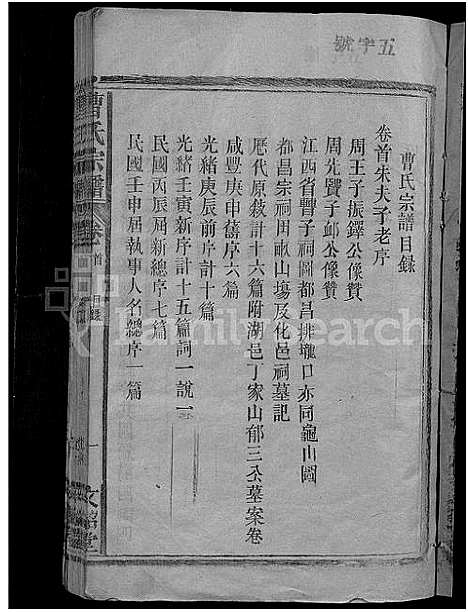 五字號
曹氏宗譜目録
卷首朱夫子老序
周王子振鐸公像贊
周先賢子邺公像贊
江西省曹子祠圖都昌排壠口亦同龜山圖
都昌宗祠田畝山塲及化邑祠墓記
歷代原敘計十六篇附湖邑丁家山郁三公墓案卷
咸豐庚申舊序六篇
光緒庚辰前序計十篇
光緒壬寅新序計十五篇詞一說一
民國丙辰屆新總序七篇
民國壬申屆執事人名總序一篇
曹氏宗譜
卷首
目録
一
文
FamilySearch